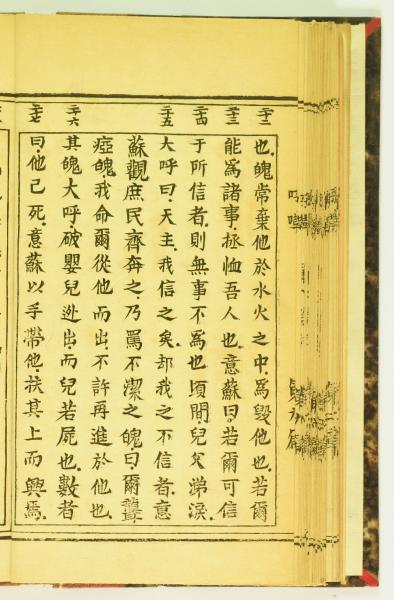 二十二
也．魄常棄他於水火之中．為毀他也．若爾
二十三
能為諸事．拯恤吾人也．意蘇曰．若爾可信
二十四
于所信者．則無事不為也．頃間．兒父涕淚．
二十五
大呼曰．天主．我信之矣．却我之不信者．意
蘇觀庶民齊奔之．乃罵不潔之魄曰．爾聾
瘂魄．我命爾從他而出．不許再進於他也．
二十六
其魄大呼．破嬰兒迯出．而兒若屍也．數者
二十七
曰．他已死．意蘇以手帶他．扶其上而興焉．